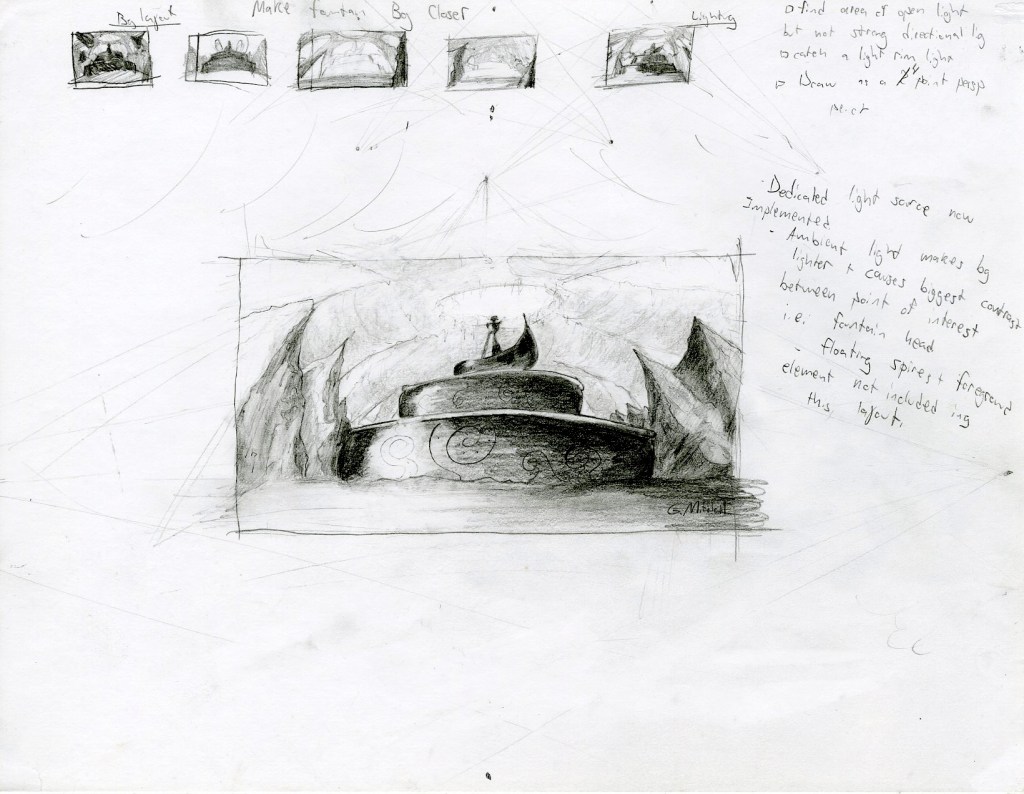 Bg layout
Make fountain Bg Closer
Lighting
find area of open light
but not strong directional lig
catch a light rim light
Draw as a 4 point persp
- Dedicated light sorce now
Implemented
- Ambient light makes bg
lighter + causes biggest contrast
between point of interest
i.e. fountain head
- floating spires + foreground
element not included ing
this layout.
G. Mitchell